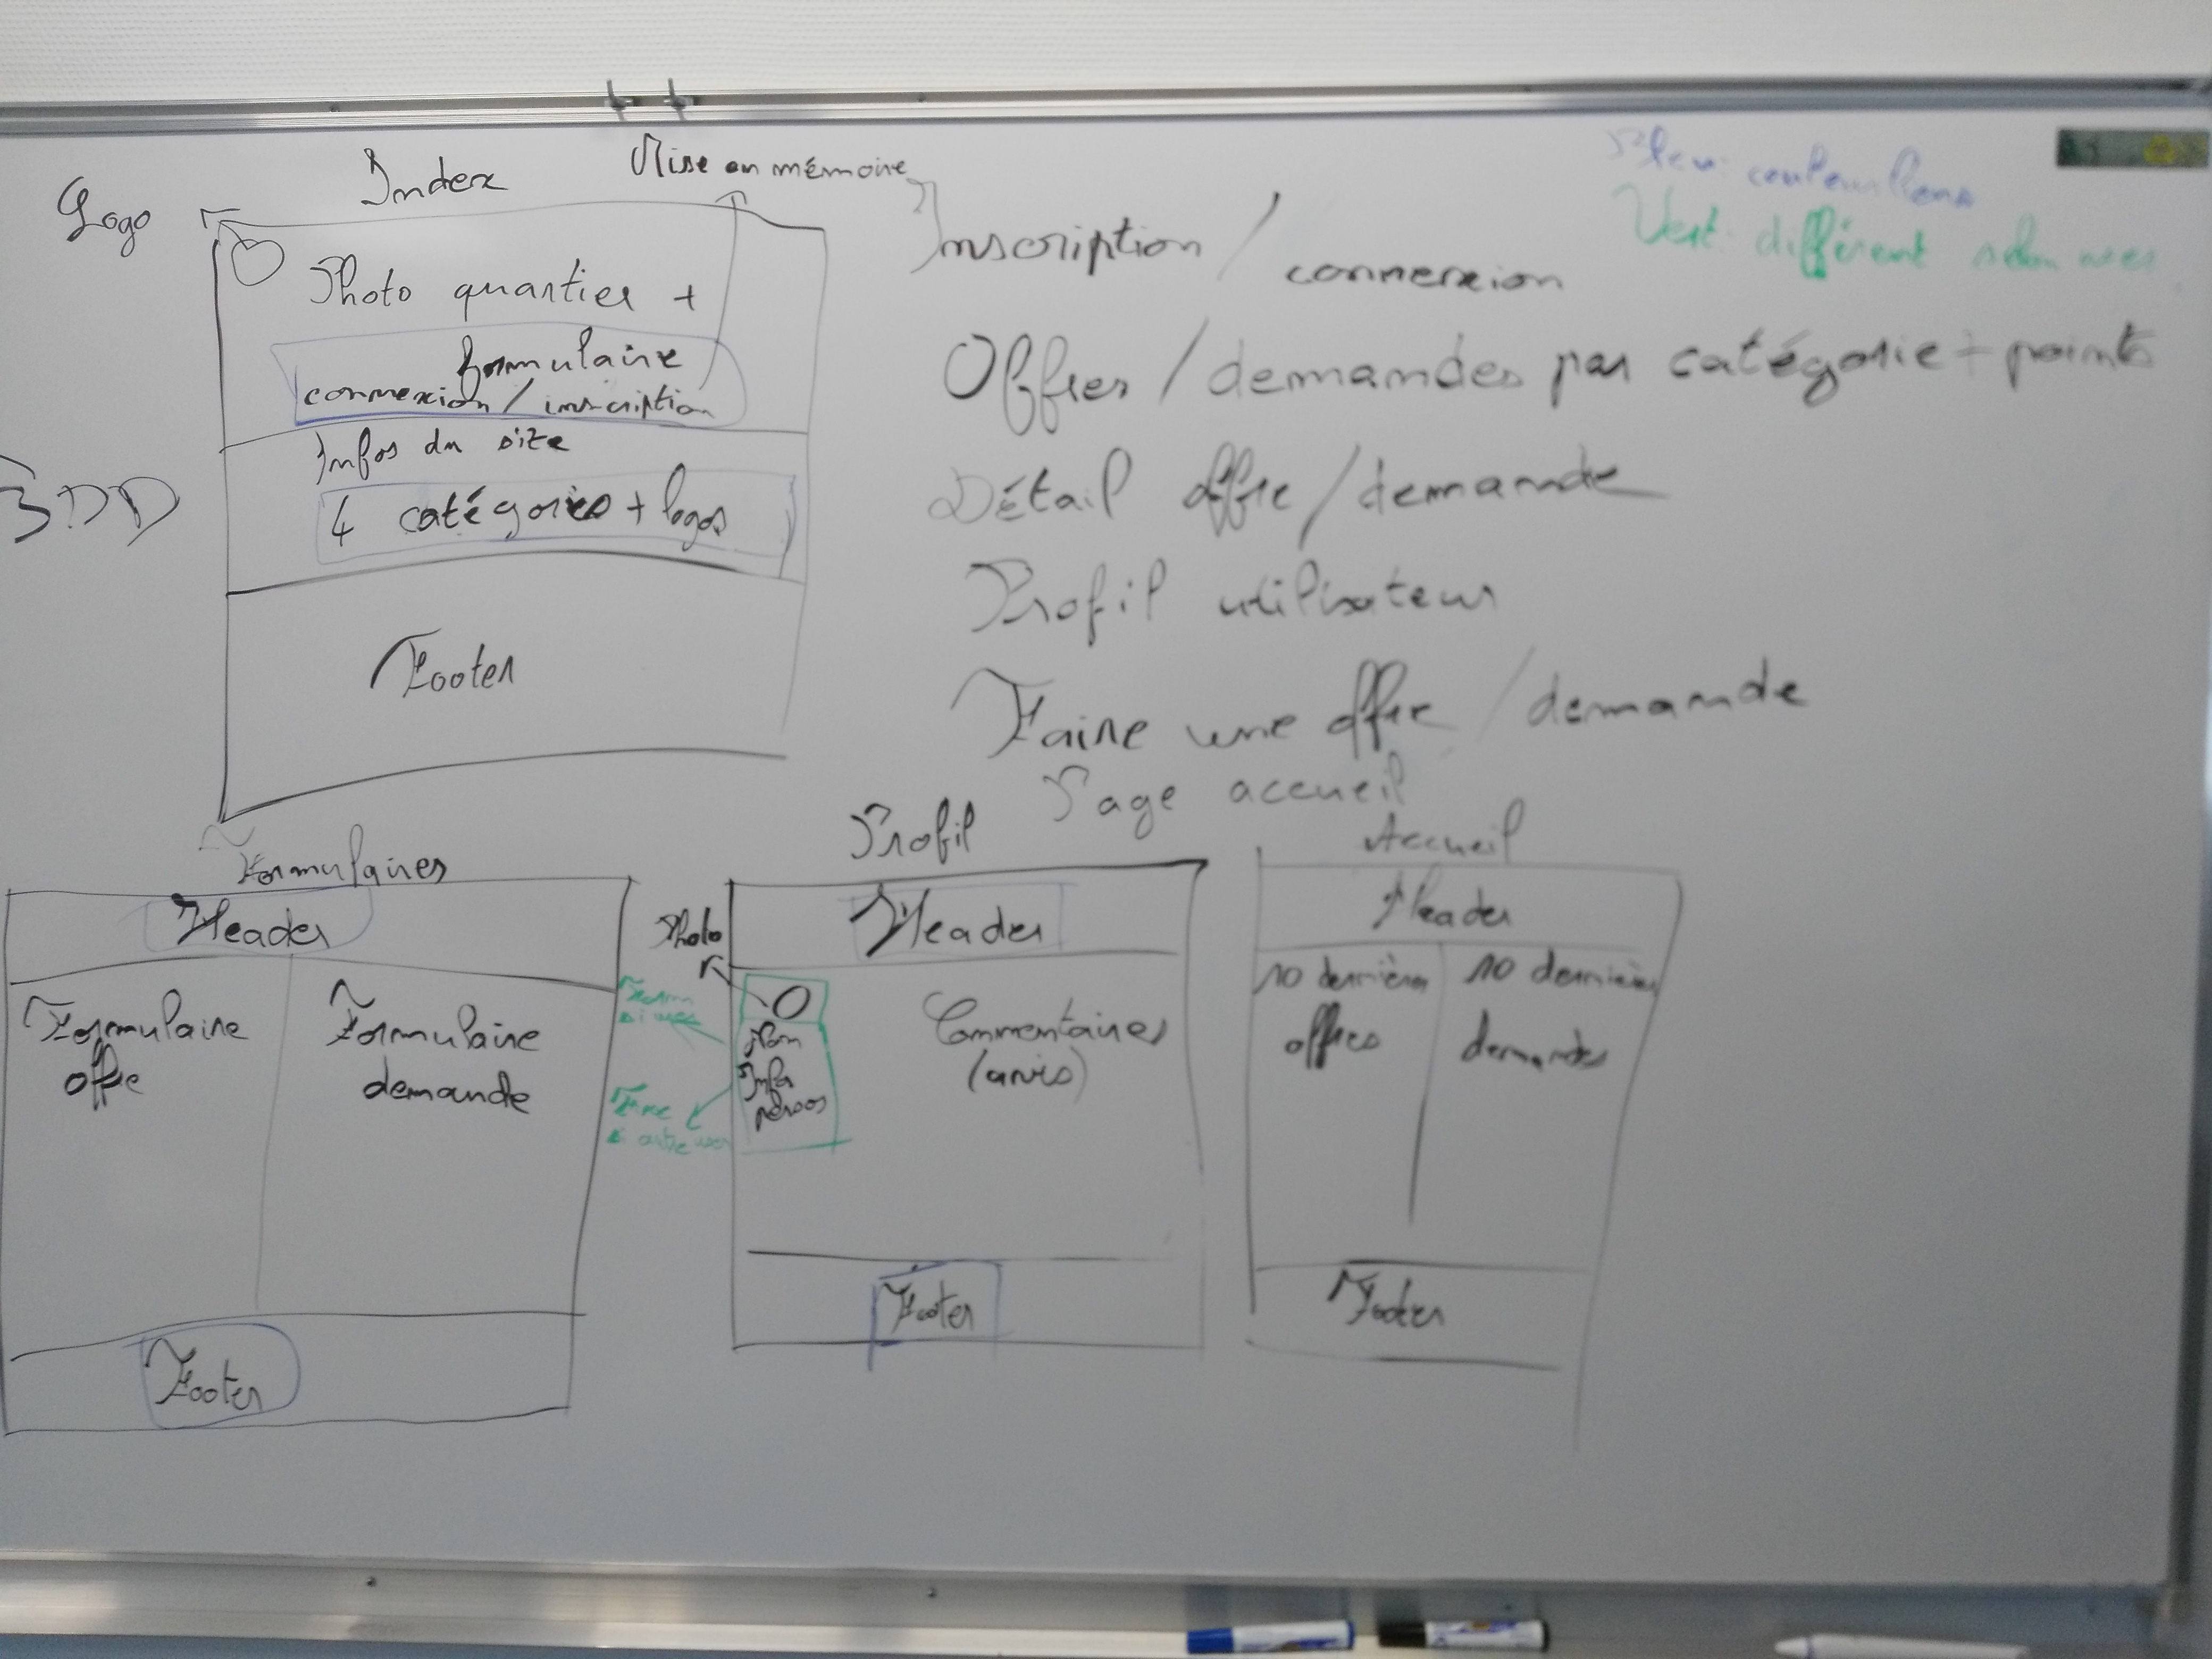 Index
Mise en mémoire
Logo
Photo quartier +
formulaire
connexion / inscription
Infos du site
4 catégories + logos
Footer
BDD
Bleu: couleur liens
Vert: différent selon user
Inscription / connexion
Offres / demandes par catégorie + points
Détail offre / demande
Profil utilisateur
Faire une offre / demande
Page accueil
Formulaires
Header
Formulaire offre
Formulaire demande
Footer
Profil
Header
Photo
Nom
Infos
persos
si user
Fixe
si autre user
Commentaires
(avis)
Footer
Accueil
Header
10 dernières
offres
10 dernières
demandes
Footer